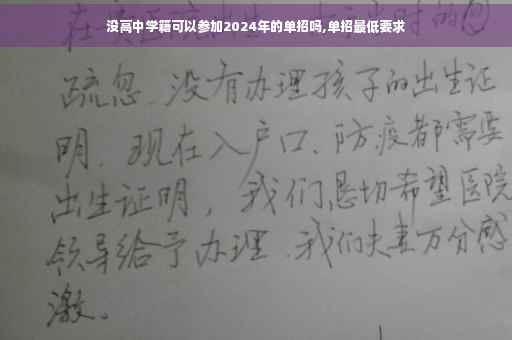 没高中学籍可以参加2024年的单招吗,单招最低要求
疏忽、没有办理孩子的出生证
明、现在入户口、防疫都需要
出生证明，我们恳切希望医院
领导给予办理、我们夫妻万分感
激。